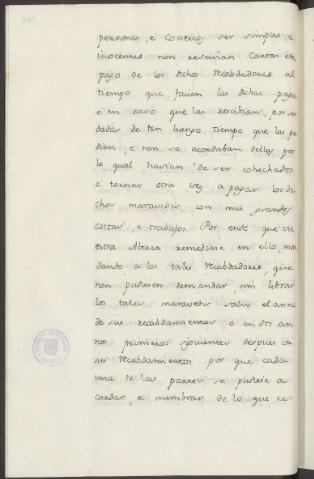 personas, e Concejos ser simples, e
inocentes non rescivian Cartas de
pago de los dichos Recabdadores al
tiempo que facian las dichas pagas
e en caso que las rescibian, por ser
dadas de tan luengo tiempo que las po
dian, e non se acordaban dellas por
lo qual havian de ser cohechados
e tornar otra vez a pagar los di
chos maravedis con mui grandes
costas, e trabajos. Por ende que vu
estra Alteza remediase en ello man
dando a los tales Recabdadores, que
non pudiesen demandar, nin librar
los tales maravedis salvo el anno
de sus recabdamientos o en dos an
nos primeros siguientes despues de
su Recabdamientos por que cada
una de las partes se pudiese a
cordar, e membrar de lo que re-